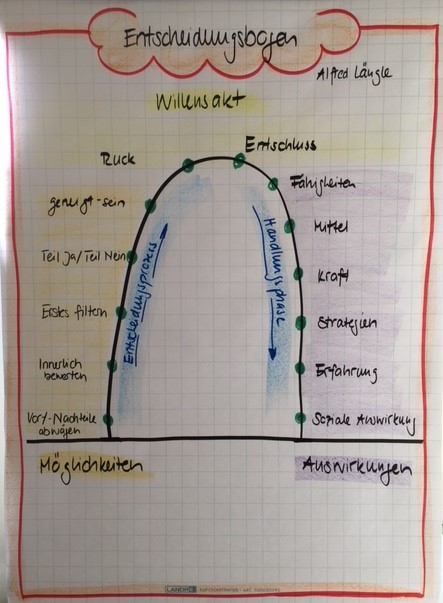 Entscheidungsbogen
Alfred Längle
Willensakt
Ruck
Entschluss
geneigt-sein
Fähigkeiten
Teil Ja/Teil Nein
Mittel
Erstes filtern
Kraft
Innerlich
bewerten
Strategien
Vor/-Nachteile
abwägen
Erfahrung
Soziale Auswirkung
Entscheidungsprozess
Handlungsphase
Möglichkeiten
Auswirkungen